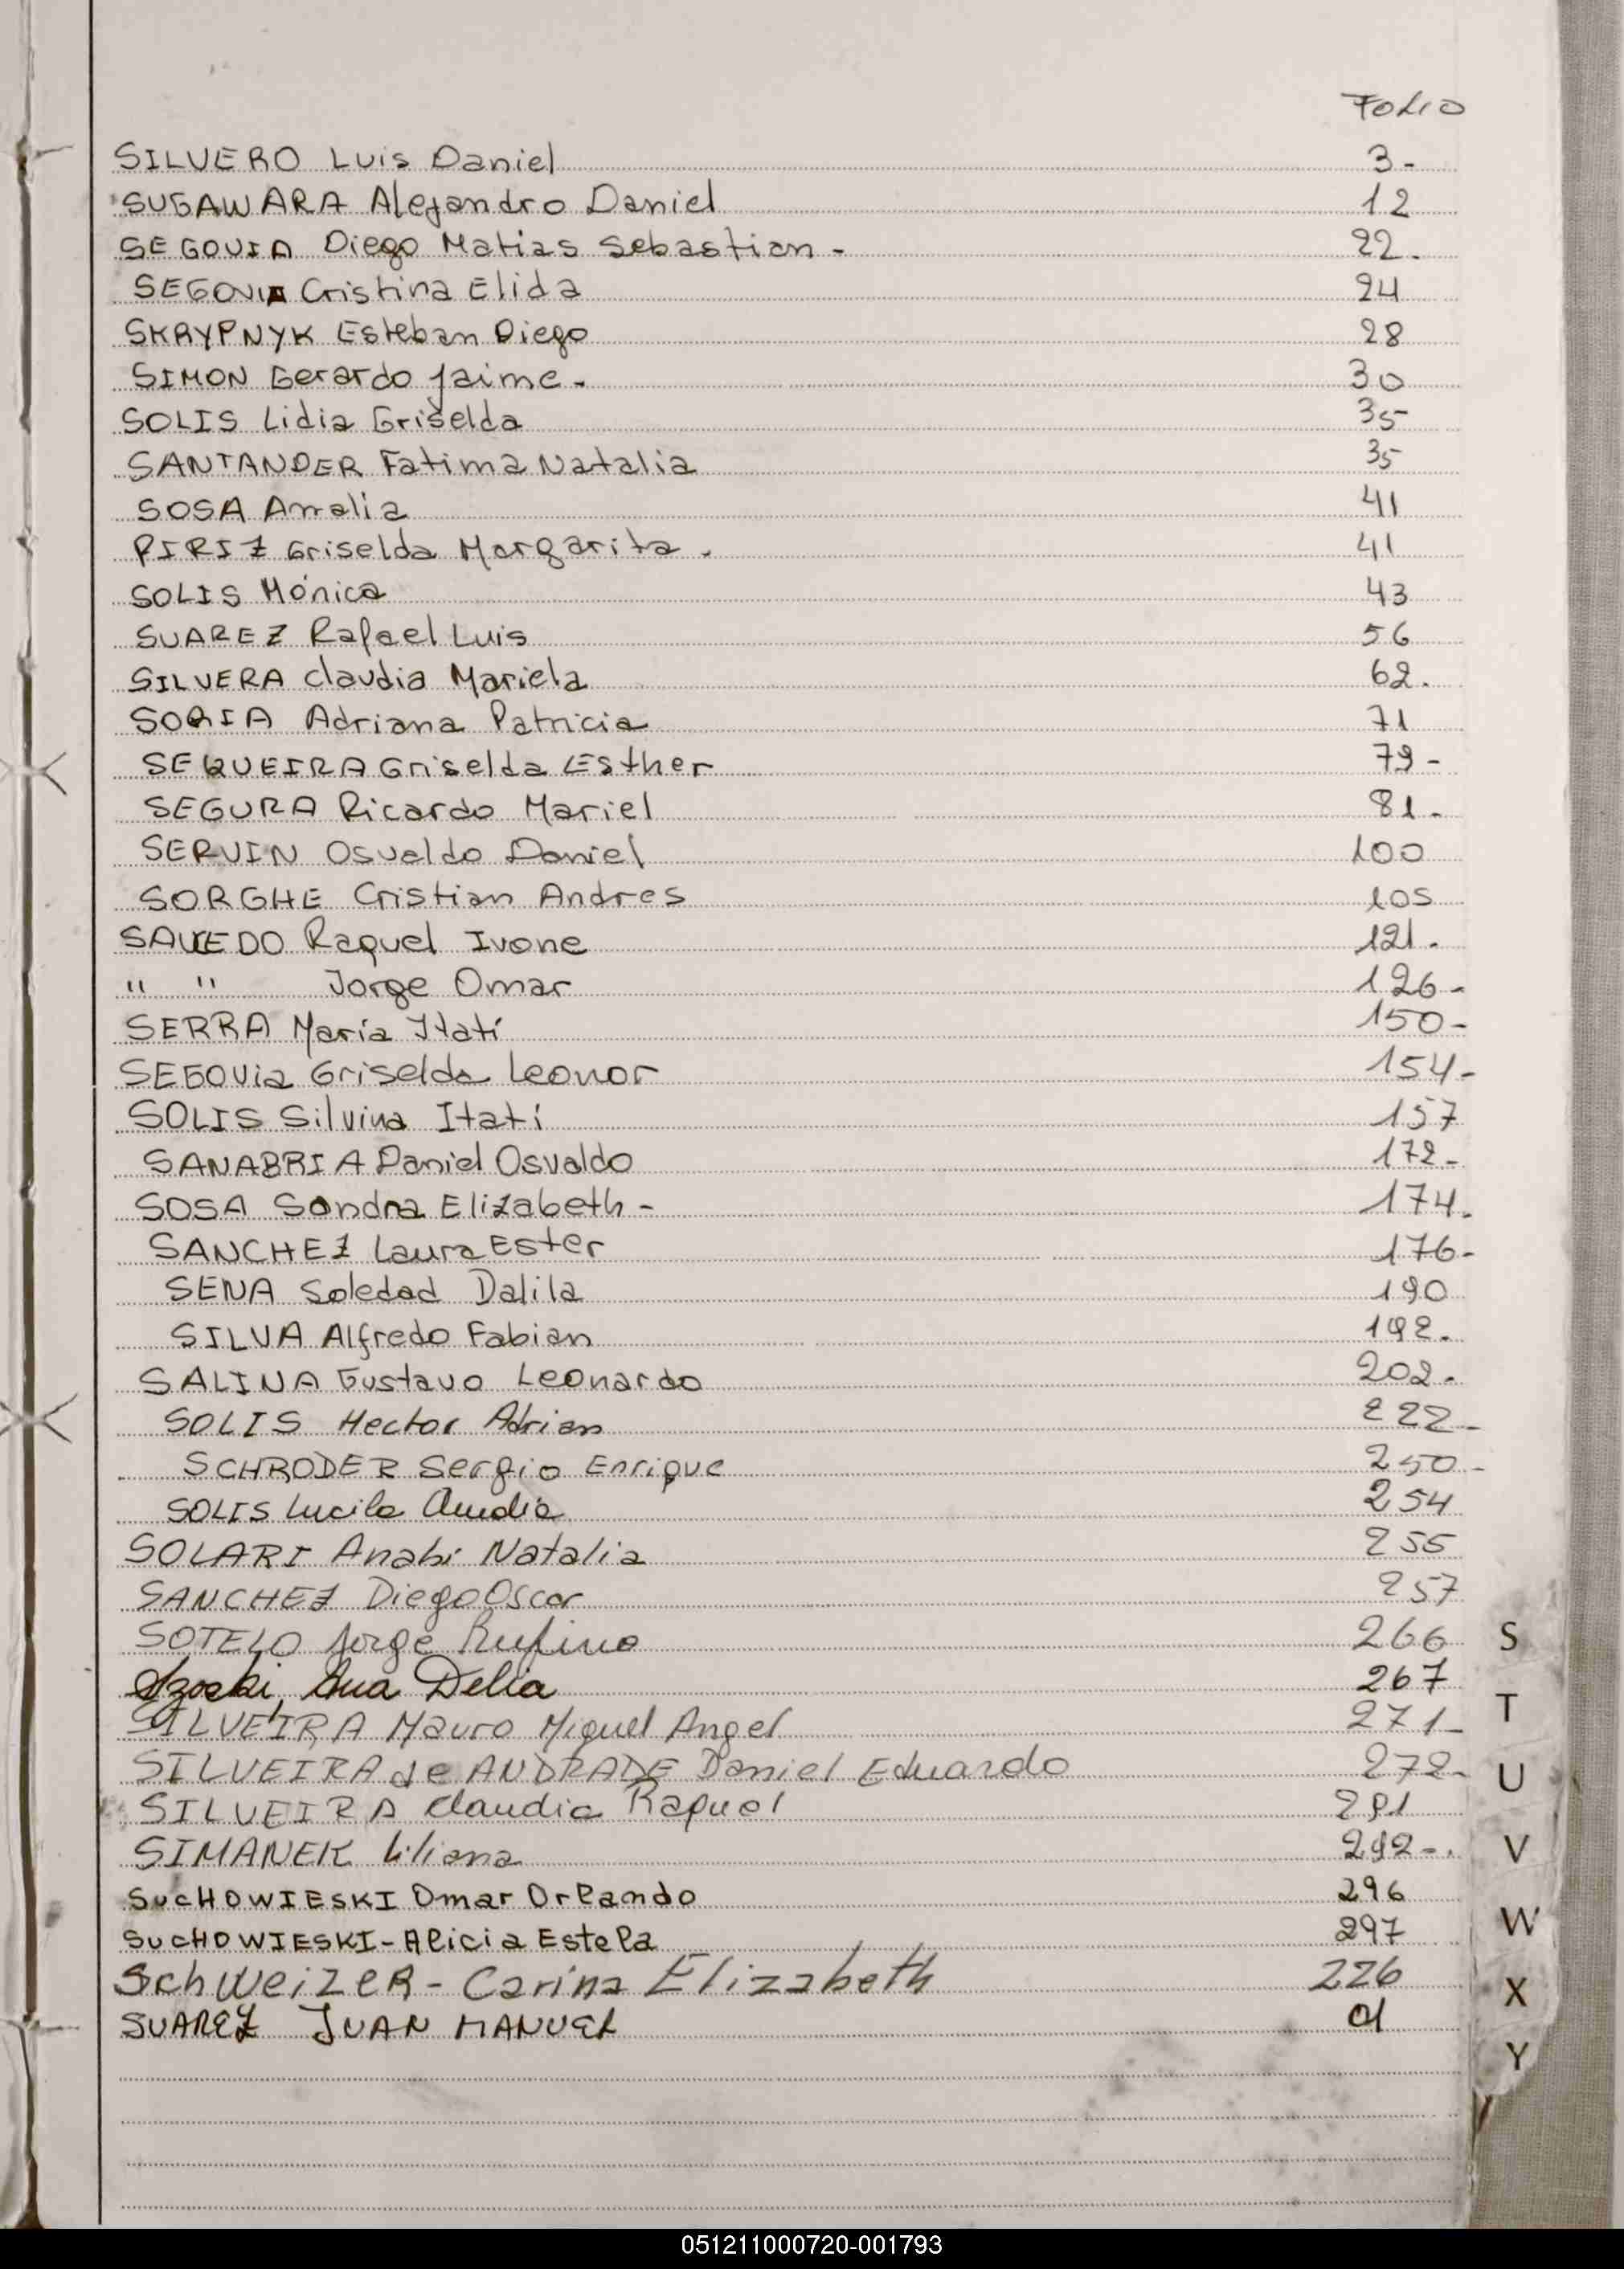 FOLIO
SILVERO Luis Daniel 3-
SUGAWARA Alejandro Daniel 12
SEGOVIA Diego Matias Sebastian - 22.
SEGOVIA Cristina Elida 24
SKRYPNYK Esteban Diego 28
SIMON Gerardo Jaime - 30
SOLIS Lidia Griselda 35
SANTANDER Fatima Natalia 35
SOSA Amalia 41
PIRIZ Griselda Margarita . 41
SOLIS Mónica 43
SUAREZ Rafael Luis 56
SILVERA Claudia Mariela 62.
SORIA Adriana Patricia 71
SEQUEIRA Griselda Esther 79-
SEGURA Ricardo Mariel 81.
SERVIN Osvaldo Daniel 100
SORGHE Cristian Andres 105
SAUCEDO Raquel Ivone 121.
" " Jorge Omar 126-
SERRA María Itatí 150-
SEGOVia Griselda Leonor 154-
SOLIS Silvina Itatí 157
SANABRIA Daniel Osvaldo 172-
SOSA Sandra Elizabeth - 174.
SANCHEZ Laura Ester 176-
SENA Soledad Dalila 190
SILVA Alfredo Fabian 192.
SALINA Gustavo Leonardo 202.
SOLIS Hector Adrian 222-
SCHRODER Sergio Enrique 250-
SOLIS Lucila 254
SOLARI Anabi Natalia 255
SANCHEZ Diego Oscar 257
SOTELO Jorge Rufino 266
Ana Delia 267
SILVEIRA Mauro Miguel Angel 271-
SILVEIRA de ANDRADE Daniel Eduardo 272-
SILVEIRA Claudia Raquel 281
SIMANEK Liliana 292-.
SucHOWIESKI Omar Orlando 296
SucHOWIESKI-Alicia Estela 297
SchWeizeR - Carina Elizabeth 226
SUAREZ JUAN MANUEL
S
T
U
V
W
X
Y
051211000720-001793